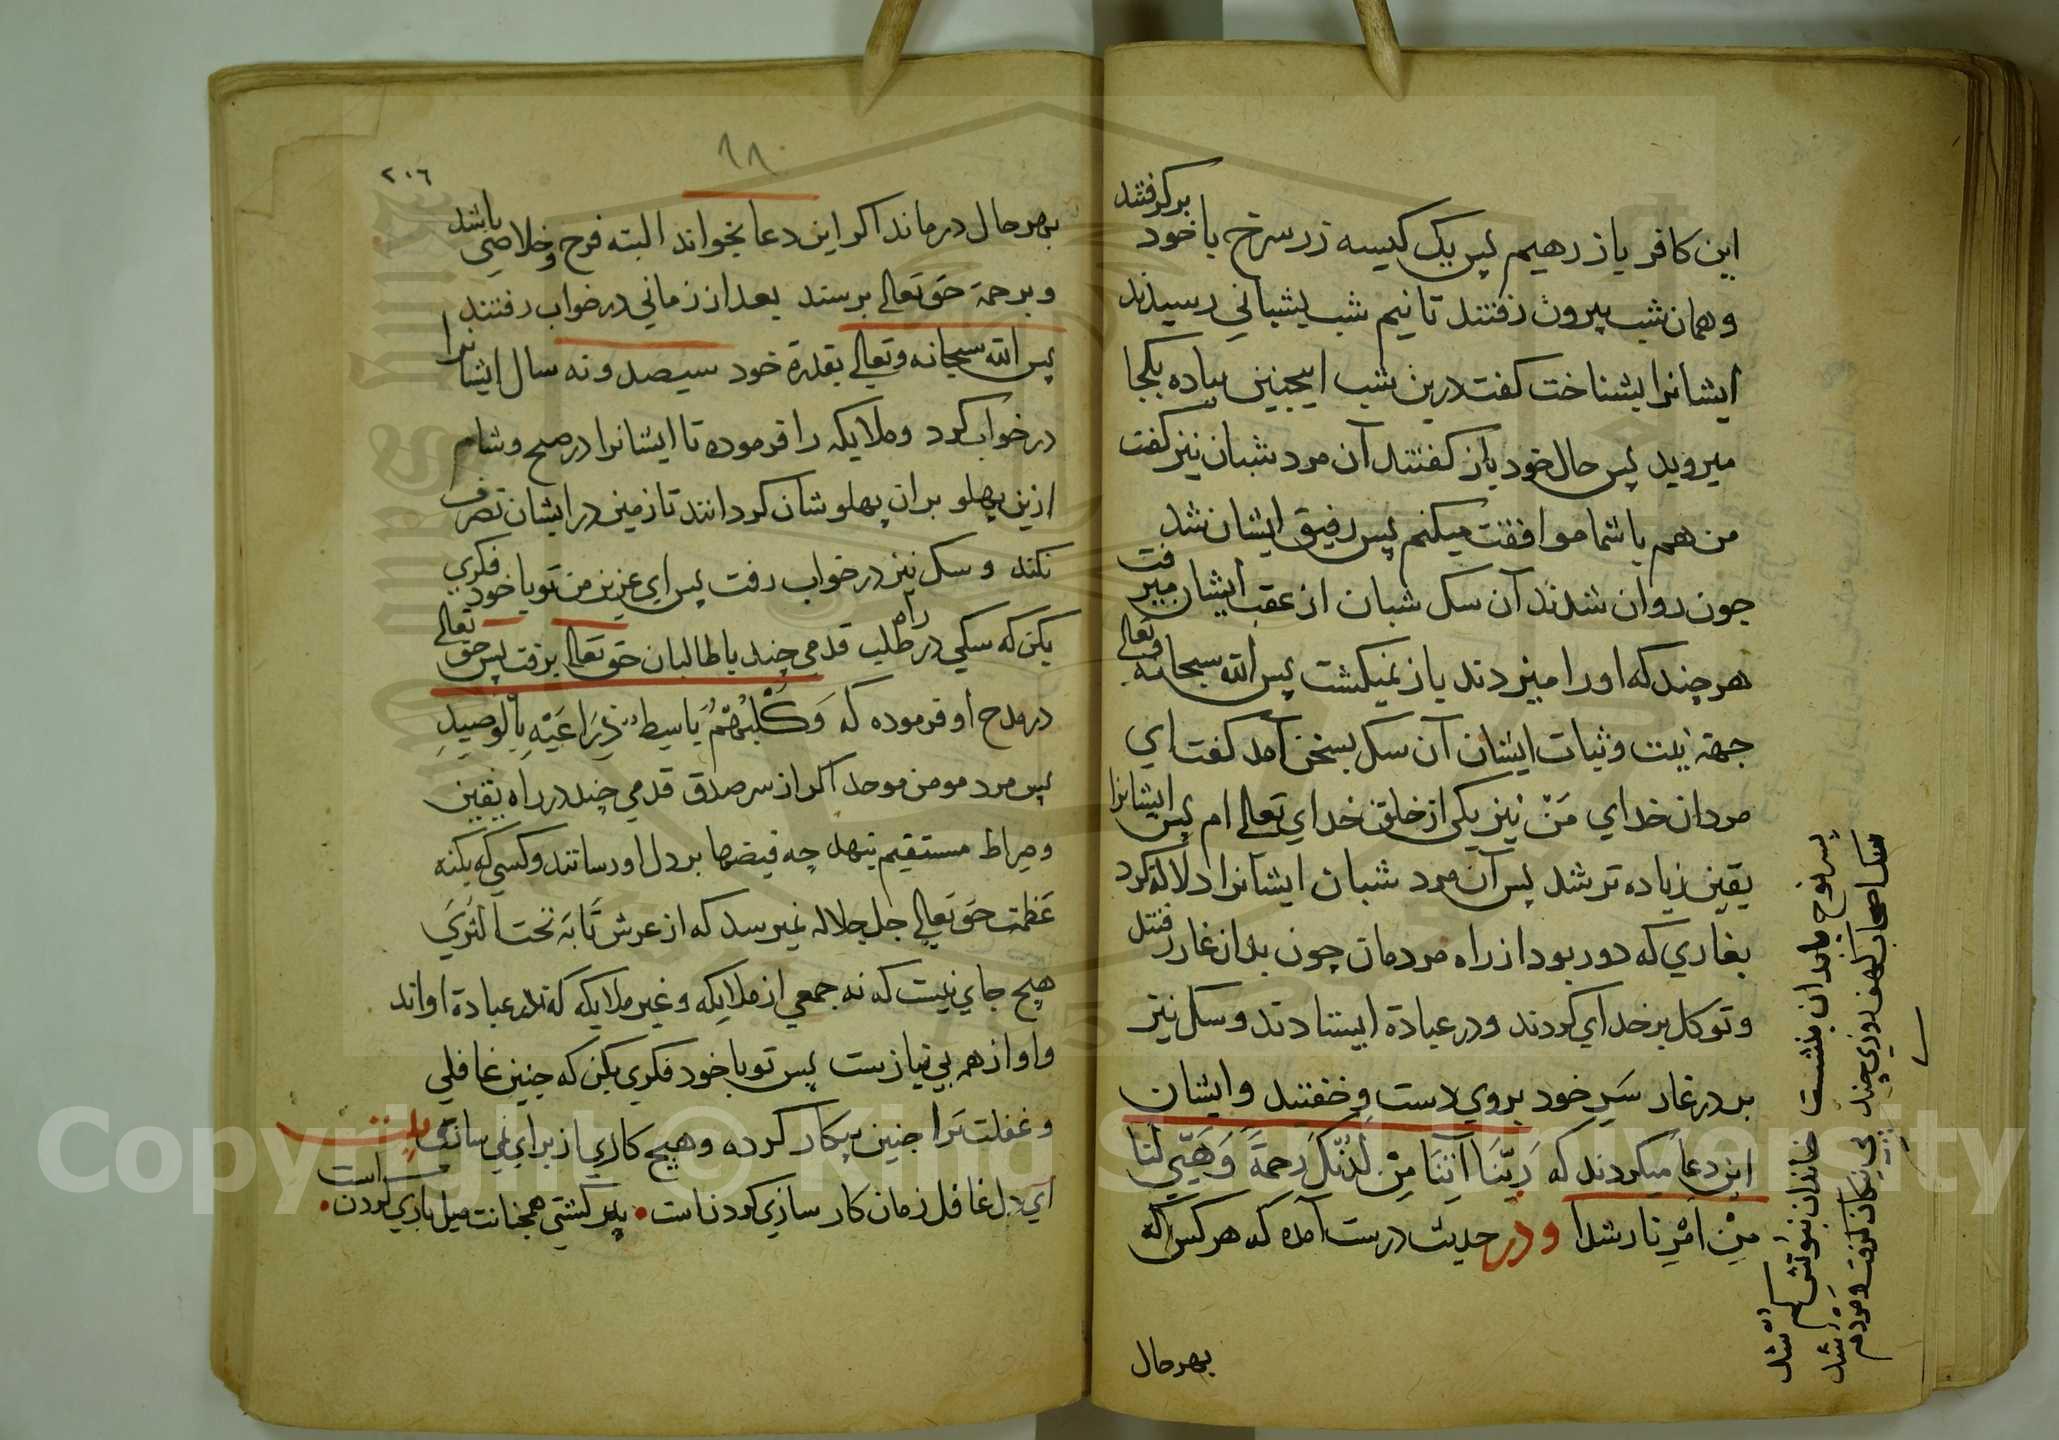 این کافر باز رهیم پس یک کیسه زر سرخ با خود برکرفتند
و همان شب بیرون رفتند تا نیم شب بشبانی رسیدند
ایشانرا بشناخت کفت درین شب اینچنین پیاده بکجا
میروید پس حال خود باز کفتند آن مرد شبان نیز کفت
من هم با شما موافقت میکنم پس رفیق ایشان شد
جون روان شدند آن سک شبان از عقب ایشان میرفت
هر چند که او را میزدند باز نمیکشت پس الله سبحانه وتعالی
جهة نیت و ثبات ایشان آن سک بسخن آمد کفت ای
مردان خدای مَنْ نیز یکی از خلق خدای تعالی ام پس ایشانرا
یقین زیاده تر شد پس آن مرد شبان ایشانرا دلالة کرد
بغاری که دور بود از راه مردمان چون بدان غار رفتند
و توکل بر خدای کردند و در عبادة ایستادند و سک نیز
بر در غار سَرِ خود بروی دست و خفتند و ایشان
این دعا میکردند که رَبَّنَا آتِنَا مِنْ لَدُنْكَ رَحمةً وَهَيِّي لَنا
مِنْ اَمْرِنا رشدا و در حدیث درست آمده که هر کس که
بهر حال
سک اصحاب کهف روزی چند پی نیکان کرفت و مردم شد
پسر نوح با بدان بنشست خاندان نبوتش کم شد
٢٠٦
بهر حال درماند اکر این دعا بخواند البته فرح و خلاصی باشد
و برحمة حق تعالی برسند بعد از زمانی در خواب رفتند
پس الله سبحانه وتعالی بقدرة خود سیصد و نه سال ایشانرا
در خواب کرد و ملایکه را فرموده تا ایشانرا در صبح و شام
ازین پهلو بران پهلوشان کردانند تا زمین در ایشان تصرف
نکند و سک نیز در خواب رفت پس ای عزیز من تو با خود فکری
بکن که سکی در راه طلب قدمی چند با طالبان حق تعالی برفت پس حق تعالی
در مدح او فرموده که وَكَلْبُهُمْ بَاسِطٌ ذِرَاعَيْهِ بِالْوَصِيدِ
پس مرد مومن موحد اکر از سر صدق قدمی چند در راه یقین
و صراط مستقیم بنهد چه فیضها بر دل او رسانند و کسی که بکنه
عَظمت حق تعالی جل جلاله نمیرسد که از عرش تا به تحت الثری
هیچ جای نیست که نه جمعی از ملایکه و غیر ملایکه که در عبادة اواند
و او از همه بی نیازست پس تو با خود فکری بکن که چنین غافلی
و غفلت ترا چنین بیکار کرده و هیچ کاری از برای نمی سازی بیت
ای دل غافل زمان کار سازی کردن است • پیر کشتی همچنانت میل بازی کردن است •